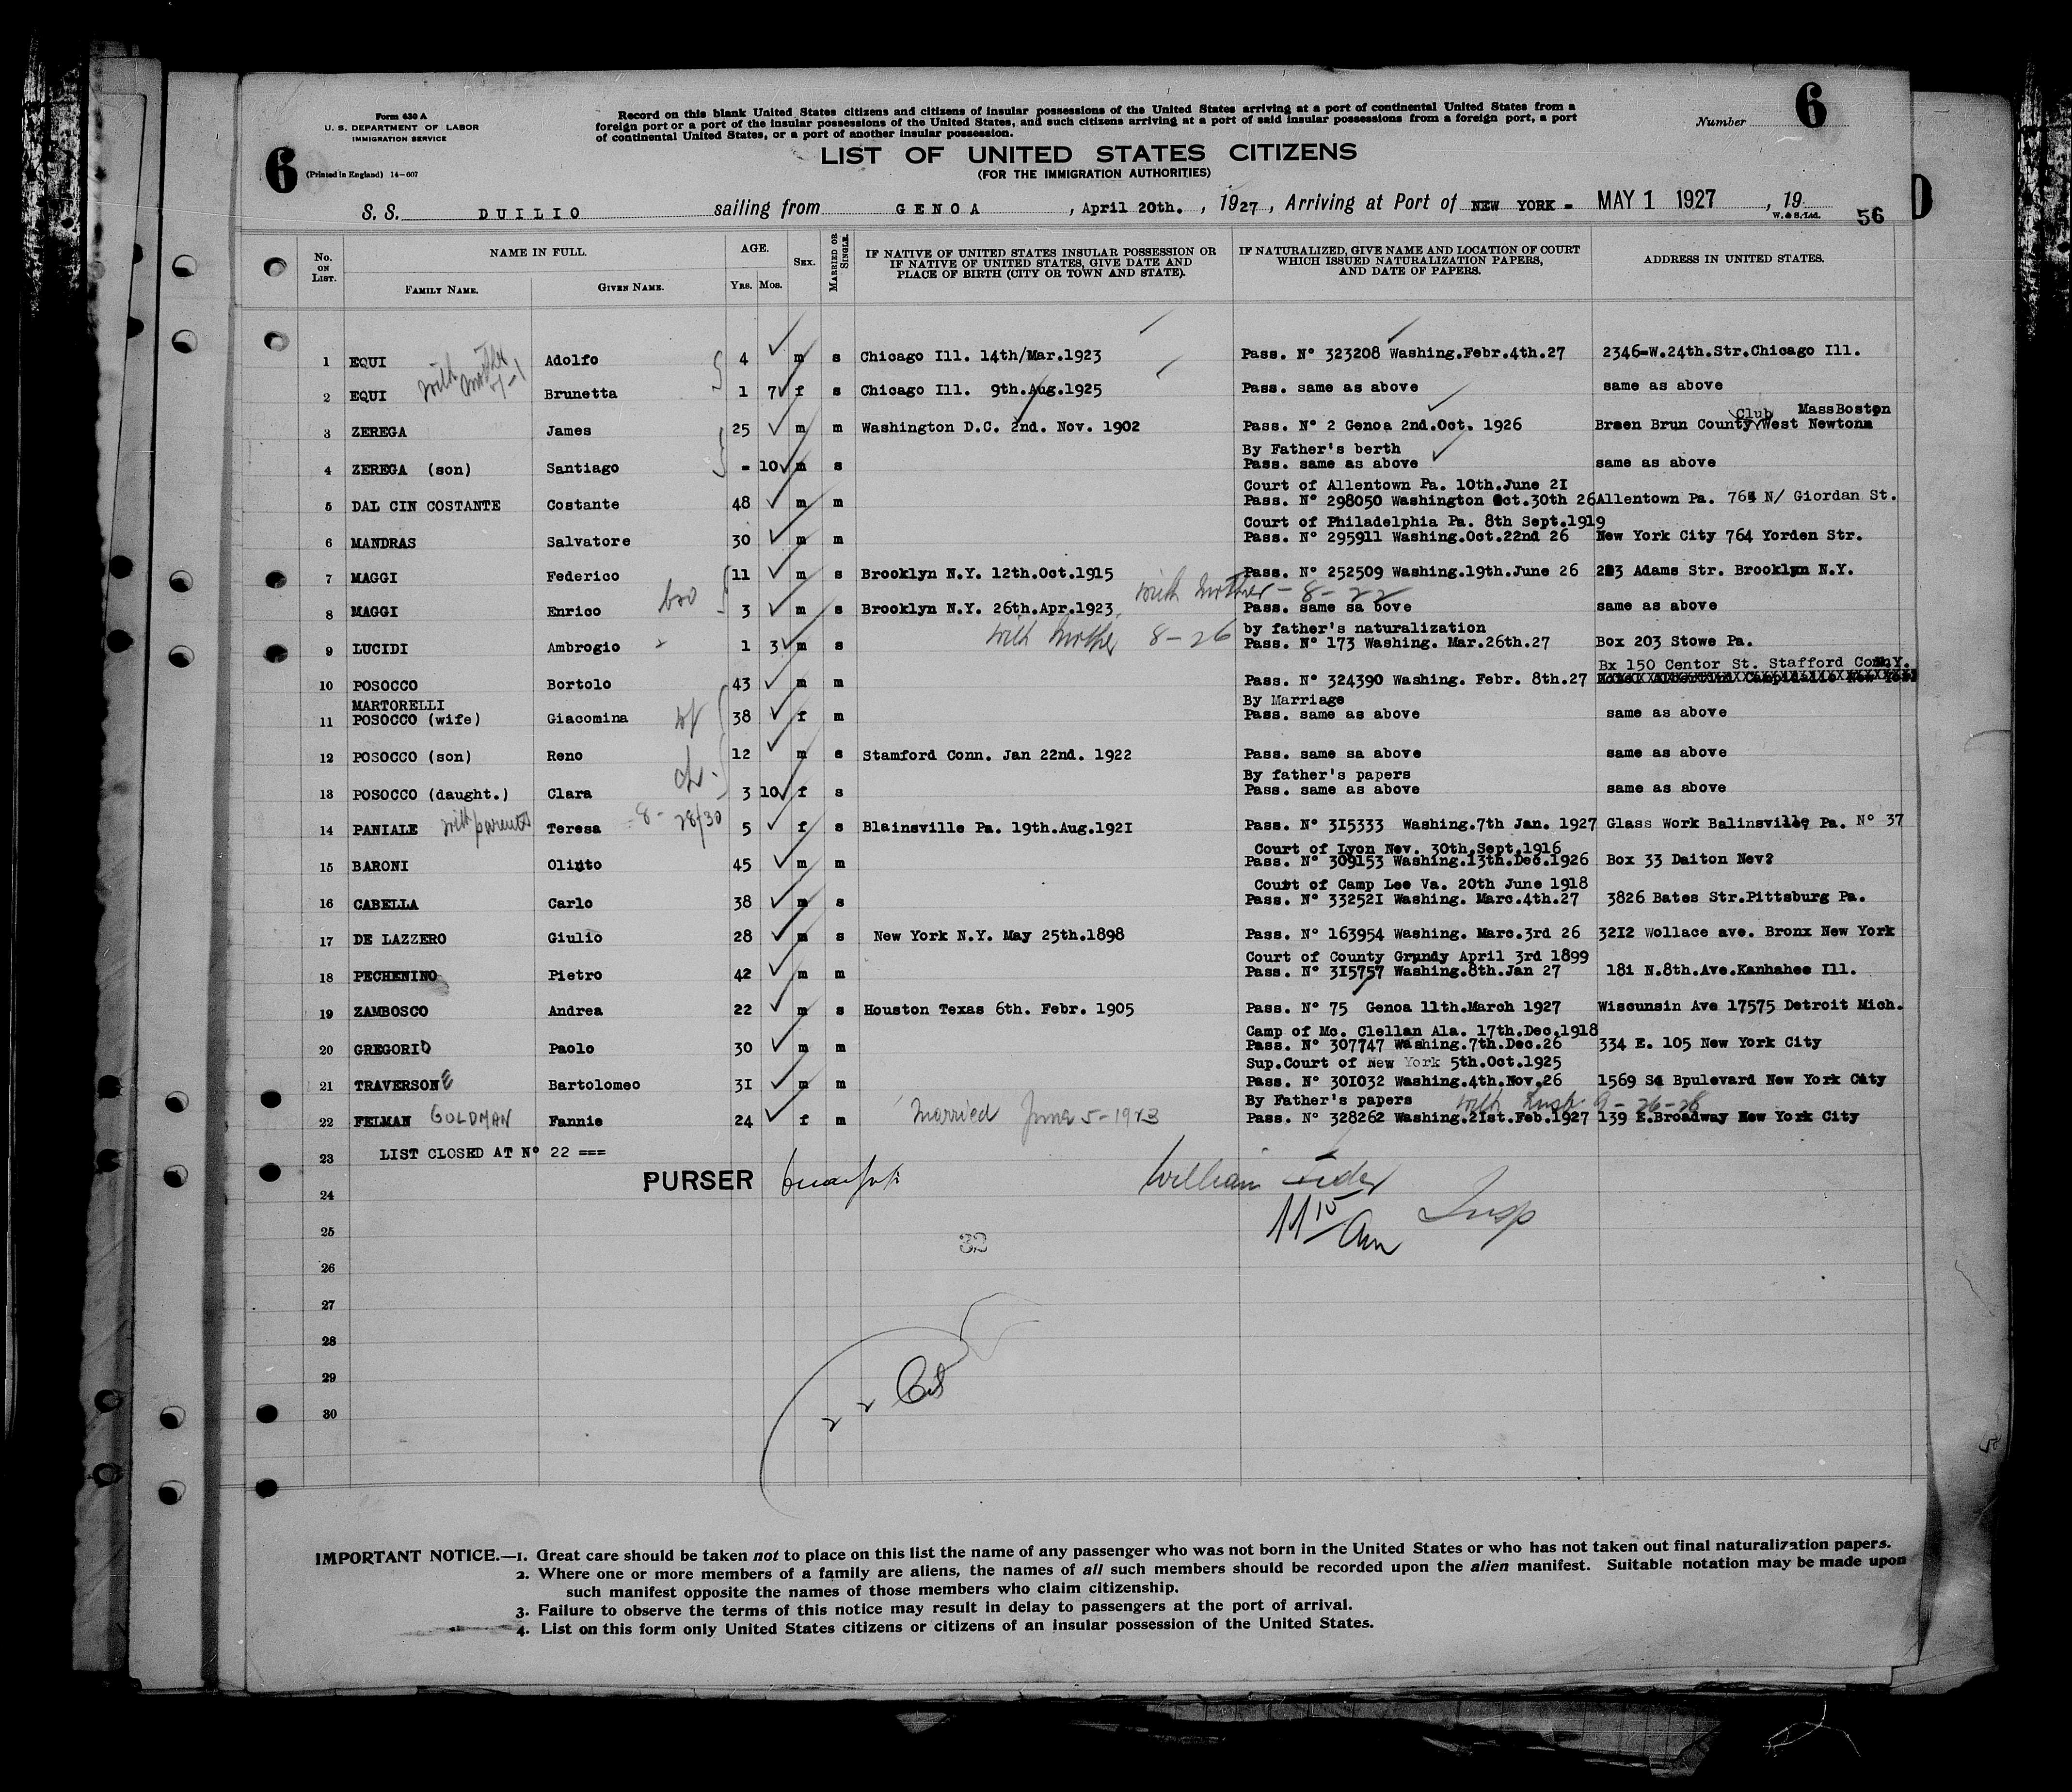 Form 630 A
U. S. DEPARTMENT OF LABOR
IMMIGRATION SERVICE
6
(Printed in England) 14-607
Record on this blank United States citizens and citizens of insular possessions of the United States arriving at a port of continental United States from a
foreign port or a port of the insular possessions of the United States, and such citizens arriving at a port of said insular possessions from a foreign port, a port
of continental United States, or a port of another insular possession.
Number 6
LIST OF UNITED STATES CITIZENS
(FOR THE IMMIGRATION AUTHORITIES)
S. S. DUILIO sailing from GENOA , April 20th. , 1927 , Arriving at Port of NEW YORK = MAY 1 1927 , 19
W. & S. Ltd.
56
No. ON LIST.
NAME IN FULL.
FAMILY NAME. GIVEN NAME.
AGE.
YRS. MOS.
SEX.
MARRIED OR SINGLE.
IF NATIVE OF UNITED STATES INSULAR POSSESSION OR
IF NATIVE OF UNITED STATES, GIVE DATE AND
PLACE OF BIRTH (CITY OR TOWN AND STATE).
IF NATURALIZED, GIVE NAME AND LOCATION OF COURT
WHICH ISSUED NATURALIZATION PAPERS,
AND DATE OF PAPERS.
ADDRESS IN UNITED STATES.
1 EQUI Adolfo 4 m s Chicago Ill. 14th/Mar.1923 Pass. N° 323208 Washing.Febr.4th.27 2346=W.24th.Str.Chicago Ill.
with mother
2 EQUI Brunetta 1 7 f s Chicago Ill. 9th.Aug.1925 Pass. same as above same as above
Club MassBoston
3 ZEREGA James 25 m m Washington D.C. 2nd. Nov. 1902 Pass. N° 2 Genoa 2nd.Oct. 1926 Braen Brun County West Newtonm
By Father's berth
4 ZEREGA (son) Santiago = 10 m s Pass. same as above same as above
Court of Allentown Pa. 10th.June 21
5 DAL CIN COSTANTE Costante 48 m m Pass. N° 298050 Washington Oct.30th 26 Allentown Pa. 764 N/ Giordan St.
Court of Philadelphia Pa. 8th Sept.1919
6 MANDRAS Salvatore 30 m m Pass. N° 295911 Washing.Oct.22nd 26 New York City 764 Yorden Str.
7 MAGGI Federico 11 m s Brooklyn N.Y. 12th.Oct.1915 Pass. N° 252509 Washing.19th.June 26 223 Adams Str. Brooklyn N.Y.
bro with mother - 8-22
8 MAGGI Enrico 3 m s Brooklyn N.Y. 26th.Apr.1923 Pass. same sa bove same as above
with mother 8-26 by father's naturalization
9 LUCIDI Ambrogio 1 3 m s Pass. N° 173 Washing. Mar.26th.27 Box 203 Stowe Pa.
Bx 150 Centor St. Stafford Conn.Y.
10 POSOCCO Bortolo 43 m m Pass. N° 324390 Washing. Febr. 8th.27
MARTORELLI By Marriage
11 POSOCCO (wife) Giacomina wf 38 f m Pass. same as above same as above
12 POSOCCO (son) Reno 12 m s Stamford Conn. Jan 22nd. 1922 Pass. same sa above same as above
ch. By father's papers
13 POSOCCO (daught.) Clara 3 10 f s Pass. same as above same as above
14 PANIALE with parents Teresa 8-28/30 5 f s Blainsville Pa. 19th.Aug.1921 Pass. N° 315333 Washing.7th Jan. 1927 Glass Work Balinsville, Pa. N° 37
Court of Lyon Nev. 30th.Sept.1916
15 BARONI Olinto 45 m m Pass. N° 309153 Washing.13th.Dec.1926 Box 33 Daiton Nev?
Court of Camp Lee Va. 20th June 1918
16 CABELLA Carlo 38 m s Pass. N° 332521 Washing. Marc.4th.27 3826 Bates Str.Pittsburg Pa.
17 DE LAZZERO Giulio 28 m s New York N.Y. May 25th.1898 Pass. N° 163954 Washing. Marc.3rd 26 3212 Wollace ave. Bronx New York
Court of County Grundy April 3rd 1899
18 PECHENINO Pietro 42 m m Pass. N° 315757 Washing.8th.Jan 27 181 N.8th.Ave.Kanhahee Ill.
19 ZAMBOSCO Andrea 22 m s Houston Texas 6th. Febr. 1905 Pass. N° 75 Genoa 11th.March 1927 Wiscunsin Ave 17575 Detroit Mich.
Camp of Mc. Clellan Ala. 17th.Dec.1918
20 GREGORIO Paolo 30 m m Pass. N° 307747 Washing.7th.Dec.26 334 E. 105 New York City
Sup.Court of New York 5th.Oct.1925
21 TRAVERSONE Bartolomeo 31 m m Pass. N° 301032 Washing.4th.Nov.26 1569 So Bpulevard New York City
By Father's papers with husb 9-26-26
22 FELMAN GOLDMAN Fannie 24 f m Married June 5-1923 Pass. N° 328262 Washing.21st.Feb.1927 139 E.Broadway New York City
23 LIST CLOSED AT N° 22 ===
PURSER
24 William
25 11 15 am Insp
32
26
27
28
29
22 Cit
30
IMPORTANT NOTICE.—1. Great care should be taken not to place on this list the name of any passenger who was not born in the United States or who has not taken out final naturalization papers.
2. Where one or more members of a family are aliens, the names of all such members should be recorded upon the alien manifest. Suitable notation may be made upon
such manifest opposite the names of those members who claim citizenship.
3. Failure to observe the terms of this notice may result in delay to passengers at the port of arrival.
4. List on this form only United States citizens or citizens of an insular possession of the United States.